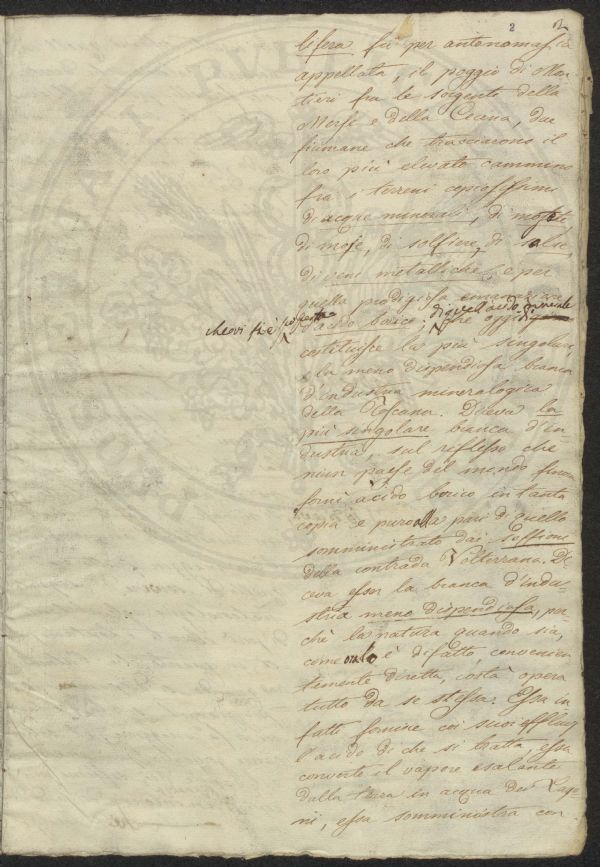 2
lifera fù per antonomasia
appellata, il poggio di Mon-
tieri fra le sorgenti della
Merse e della Cecina, due
fiumane che tracciarono il
loro più elevato cammino
fra i terreni copiosissimi
di acque minerali, di mofete
di moje, di solfiere, di salse,
di vene metalliche, e per
quella prodigiosa emanazione
d'acido borico, che
costituisce la più singolare,
e la meno dispendiosa branca
d'industria mineralogica
della Toscana. Diceva la
più singolare branca d'in-
dustria, sul riflesso che
niun paese del mondo finora
fornì acido borico in tanta
copia e puro alla pari di quello
somministrato dai Soffioni
della contrada Volterrana. Di-
ceva esser la branca d'indu-
stria meno dispendiosa, per-
chè la natura quando sia,
come ora lo è difatto, convenien-
temente diretta, costà opera
tutto da se stessa. Essa in-
fatti fornisce coi suoi efflussi
l'acido di che si tratta, essa
converte il vapore esalante
dalla terra in acqua dei Lago-
ni, essa somministra con